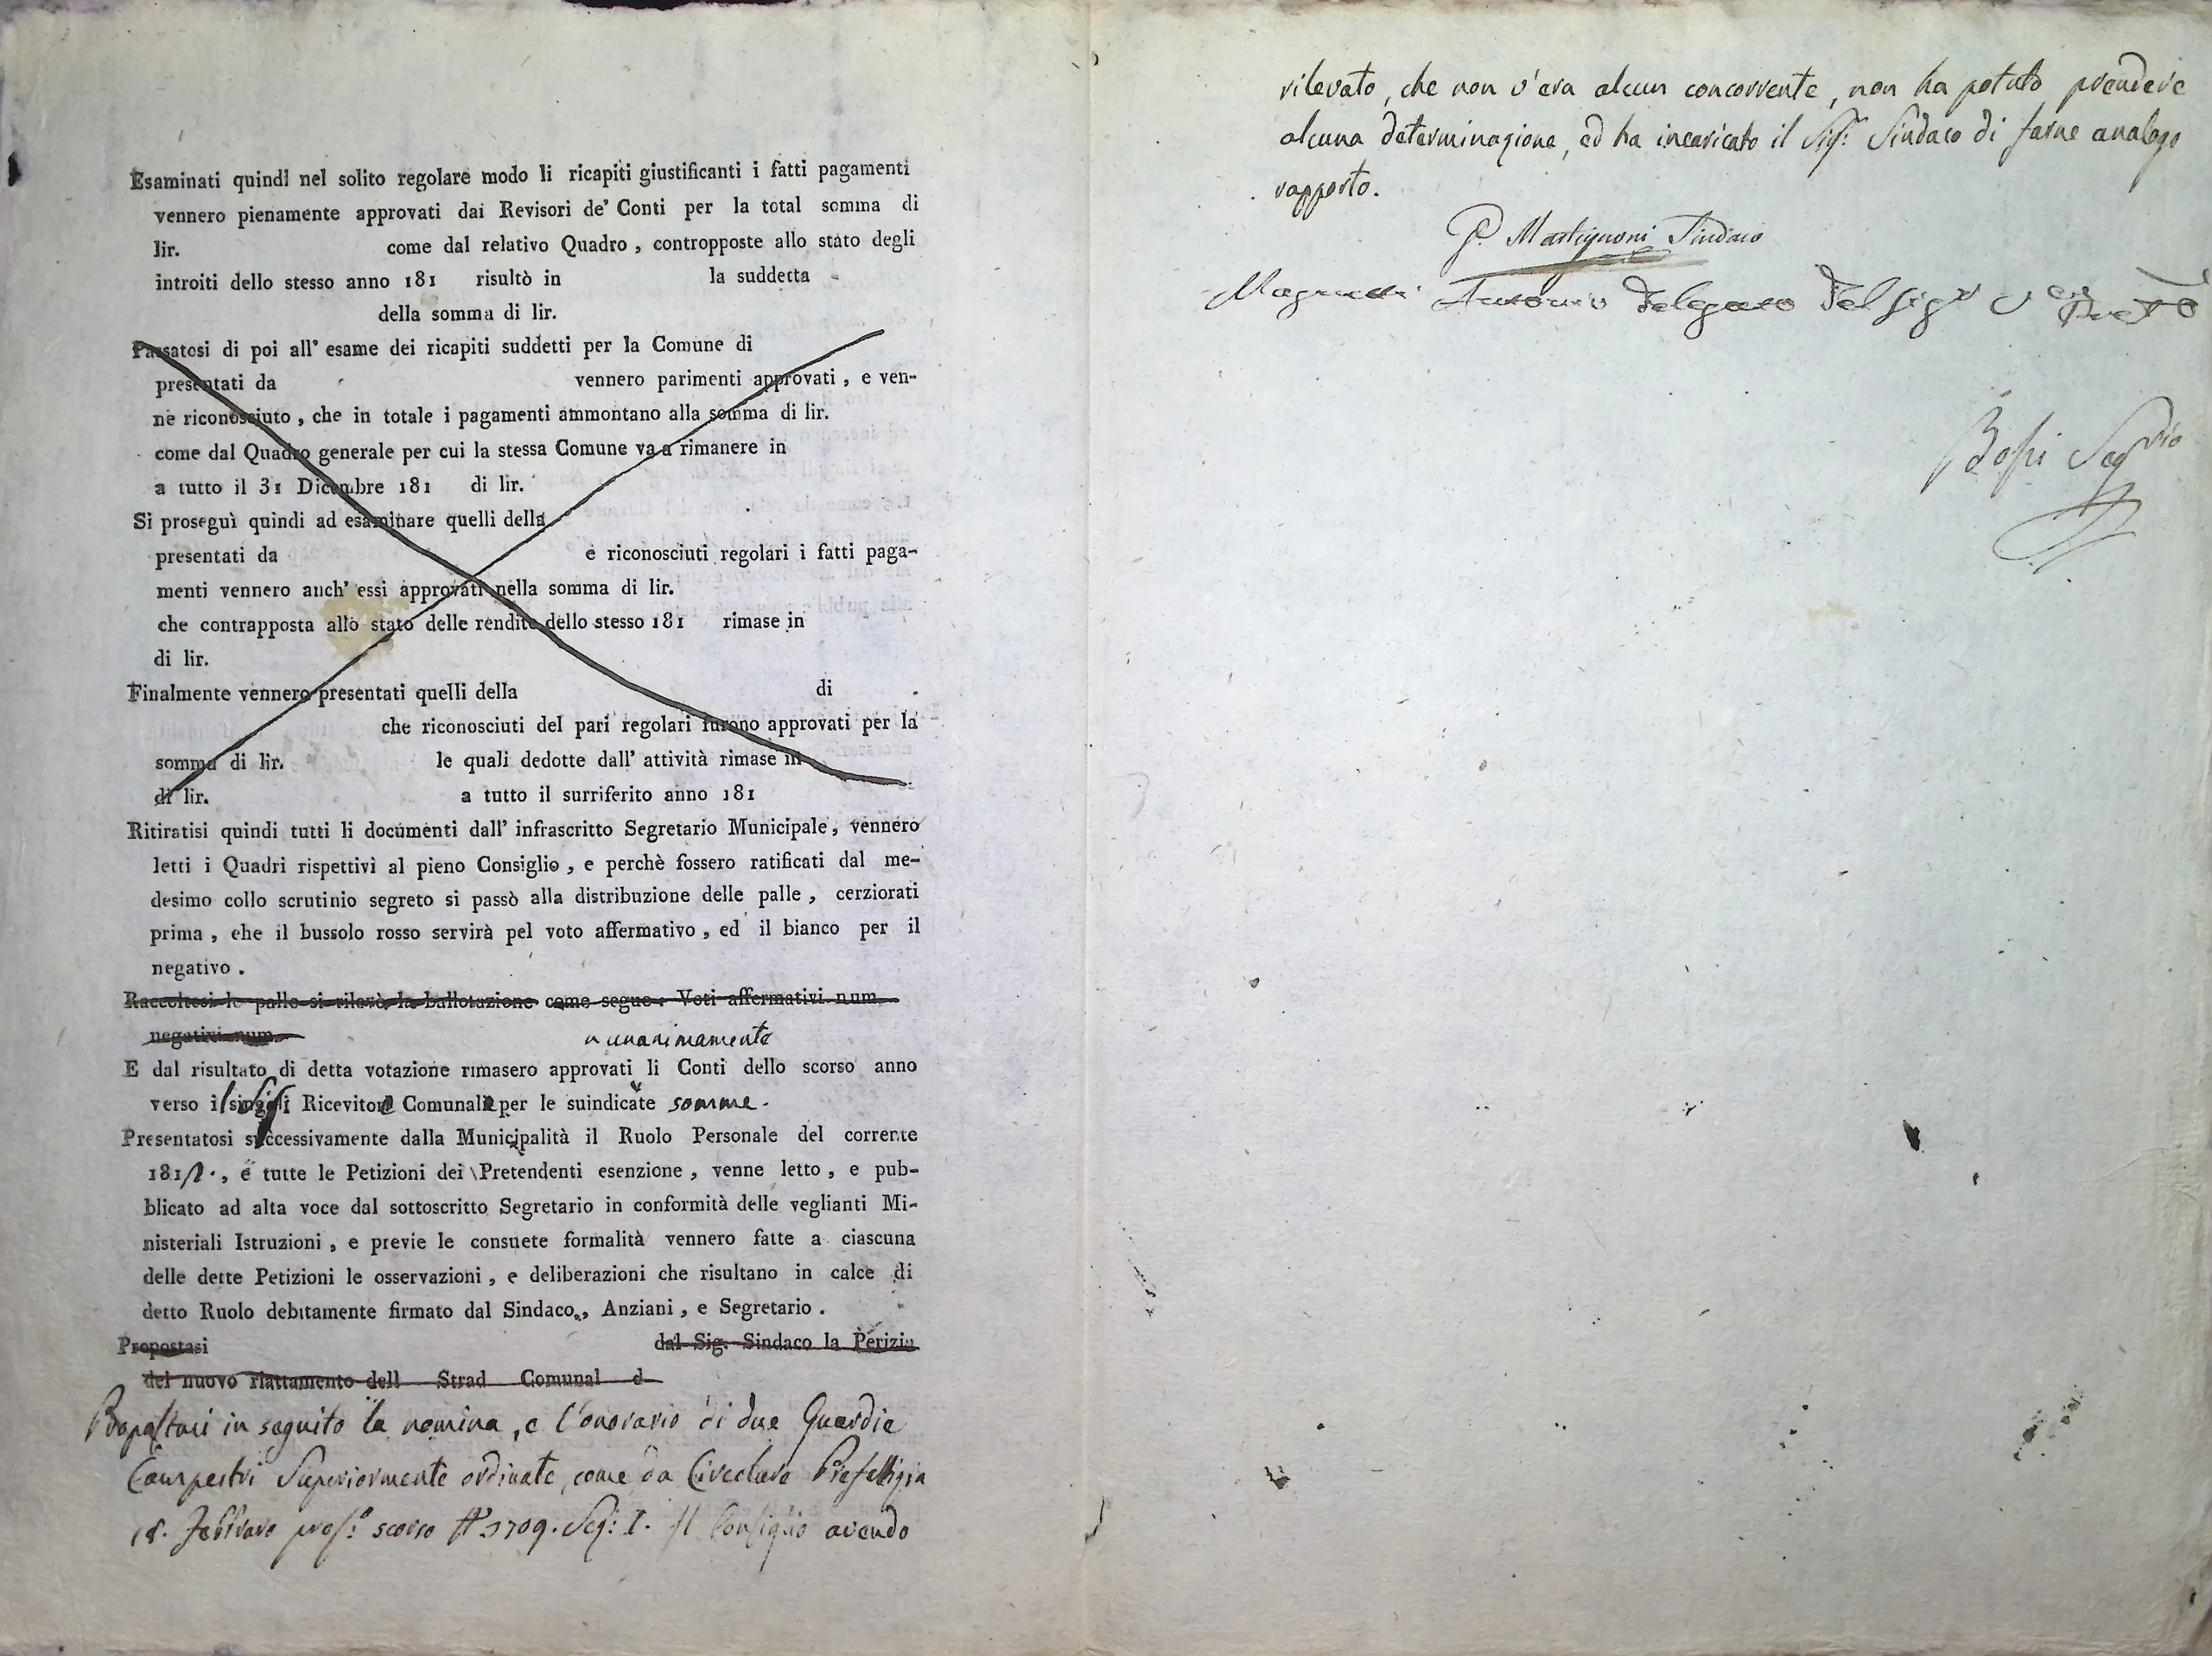 Esaminati quindi nel solito regolare modo li ricapiti giustificanti i fatti pagamenti
vennero pienamente approvati dai Revisori de' Conti per la total somma di
lir. come dal relativo Quadro , contropposte allo stato degli
introiti dello stesso anno 181 risultò in la suddetta
della somma di lir.
Passatosi di poi all' esame dei ricapiti suddetti per la Comune di
presentati da vennero parimenti approvati , e ven-
ne riconosciuto , che in totale i pagamenti ammontano alla somma di lir.
come dal Quadro generale per cui la stessa Comune va a rimanere in
a tutto il 31 Dicembre 181 di lir.
Si proseguì quindi ad esaminare quelli della
presentati da e riconosciuti regolari i fatti paga-
menti vennero anch' essi approvati nella somma di lir.
che contrapposta allo stato delle rendite dello stesso 181 rimase in
di lir.
Finalmente vennero presentati quelli della di
che riconosciuti del pari regolari furono approvati per la
somma di lir. le quali dedotte dall' attività rimase in
di lir. a tutto il surriferito anno 181
Ritiratisi quindi tutti li documenti dall' infrascritto Segretario Municipale , vennero
letti i Quadri rispettivi al pieno Consiglio , e perchè fossero ratificati dal me-
desimo collo scrutinio segreto si passò alla distribuzione delle palle , cerziorati
prima , che il bussolo rosso servirà pel voto affermativo , ed il bianco per il
negativo .
Raccoltesi le palle si rilevò la ballotazione come segue : Voti affermativi num.
negativi num.
unanimamente
E dal risultato di detta votazione rimasero approvati li Conti dello scorso anno
verso il Sig. Ricevitore Comunale per le suindicate somme.
Presentatosi successivamente dalla Municipalità il Ruolo Personale del corrente
181 , e tutte le Petizioni dei Pretendenti esenzione , venne letto , e pub-
blicato ad alta voce dal sottoscritto Segretario in conformità delle veglianti Mi-
nisteriali Istruzioni , e previe le consuete formalità vennero fatte a ciascuna
delle dette Petizioni le osservazioni , e deliberazioni che risultano in calce di
detto Ruolo debitamente firmato dal Sindaco , Anziani , e Segretario .
Propostasi dal Sig. Sindaco la Perizia
del nuovo riattamento dell Strad Comunal d
Propostasi in seguito la nomina, e l'onorario di due Guardie
Campestri Superiormente ordinate, come da Circolare Prefettizia
18. Febbraro pros.º scorso Nº 3709. Sez: I. Il Consiglio avendo
rilevato, che non v'era alcun concorrente, non ha potuto prendere
alcuna determinazione, ed ha incaricato il Sigr: Sindaco di farne analogo
rapporto.
P. Martignoni Sindaco
Antonio delegato del Sigr
Bossi Segrio